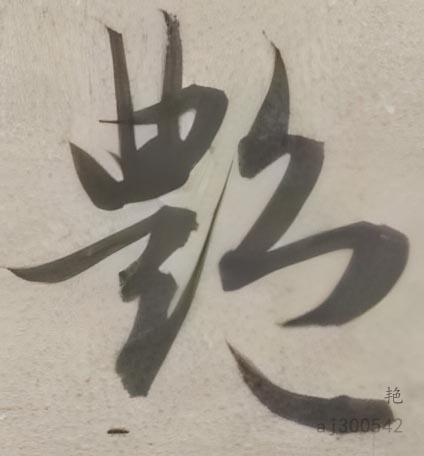 艳
艳
aj300542